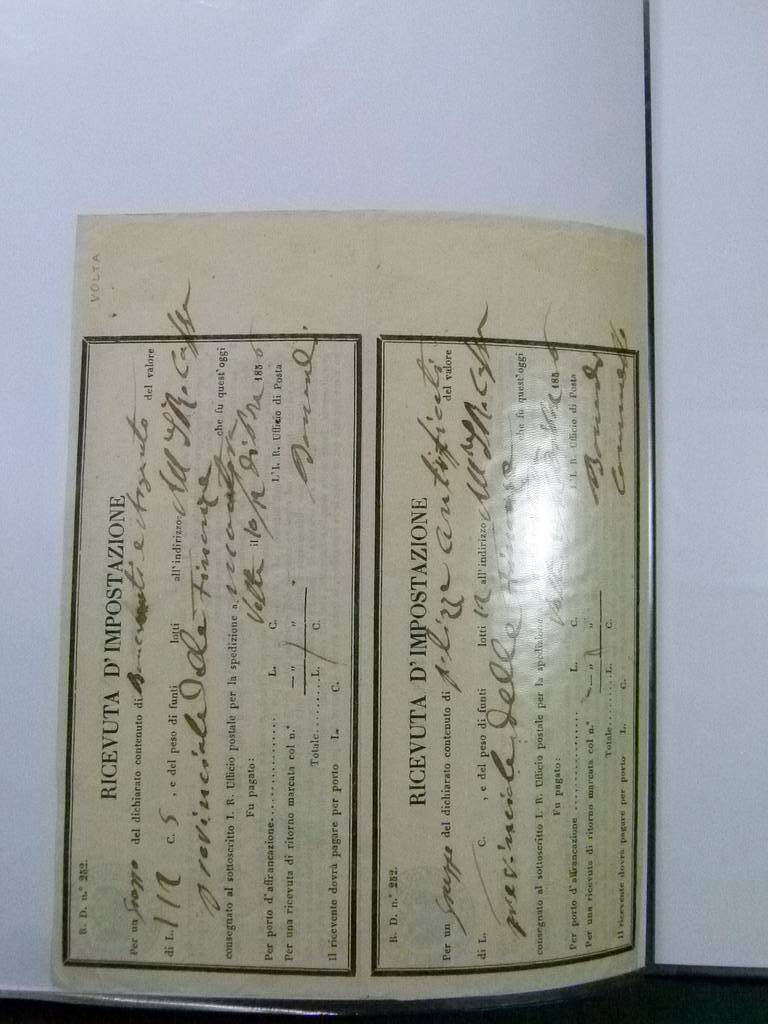 VOLTA
R. D. n.° 252.
RICEVUTA D'IMPOSTAZIONE
Per un Gruppo del dichiarato contenuto di e Argento del valore
di L. 112 C. 5, e del peso di funti lotti all'indirizzo All' I. R. Cassa
Provinciale delle Finanze
consegnato al sottoscritto I. R. Ufficio postale per la spedizione a Mantova che fu quest'oggi
Volta il 10 185
Fu pagato: L'I. R. Ufficio di Posta
Per porto d'affrancazione L. C.
Per una ricevuta di ritorno marcata col n.° — " "
Totale L. C.
il ricevente dovrà pagare per porto L. C.
R. D. n.° 252.
RICEVUTA D'IMPOSTAZIONE
Per un Gruppo del dichiarato contenuto di del valore
di L. C. , e del peso di funti lotti 12 all'indirizzo All' I. R. Cassa
provinciale delle Finanze
consegnato al sottoscritto I. R. Ufficio postale per la spedizione che fu quest'oggi
185
Fu pagato: L'I. R. Ufficio di Posta
Per porto d'affrancazione L. C.
Per una ricevuta di ritorno marcata col n.° — " "
Totale L. C.
il ricevente dovrà pagare per porto L. C.